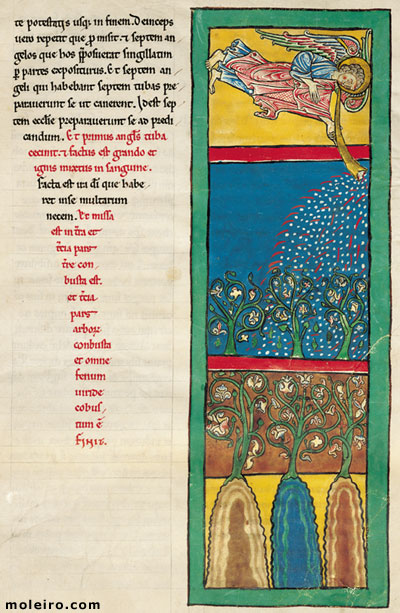 te potestatis usq; in finem. Deinceps
uero repetit que p̄misit. & septem an
gelos que hos p̄posuerat singillatim
p̱ partes expositurus. Et septem an
geli qui habebant septem tubas pre
parauerunt se ut canerent. Idest sep
tem ecclie preparauerunt se ad predi
candum. Et primus angl's tuba
cecinit. & factus est grando et
ignis mixtus in sanguine.
facta est ira dī que habe
ret in se multarum
necem. Et missa
est in t̄ra et
t̄cia pars
t̄re con
busta est.
et t̄cia
pars
arbor
conbusta
et omne
fenum
uiride
cobus
tum ē
finit.
moleiro.com